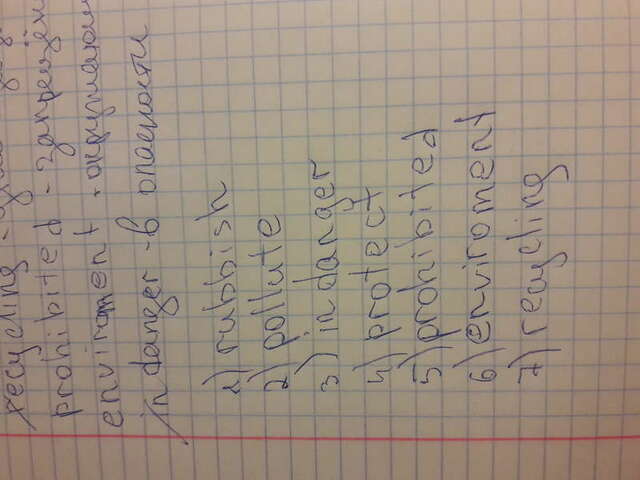 recycling -
prohibited - запрещён
enviroment - окружающ
in danger - в опасности
1) rubbish
2) pollute
3) in danger
4) protect
5) prohibited
6) enviroment
7) recycling